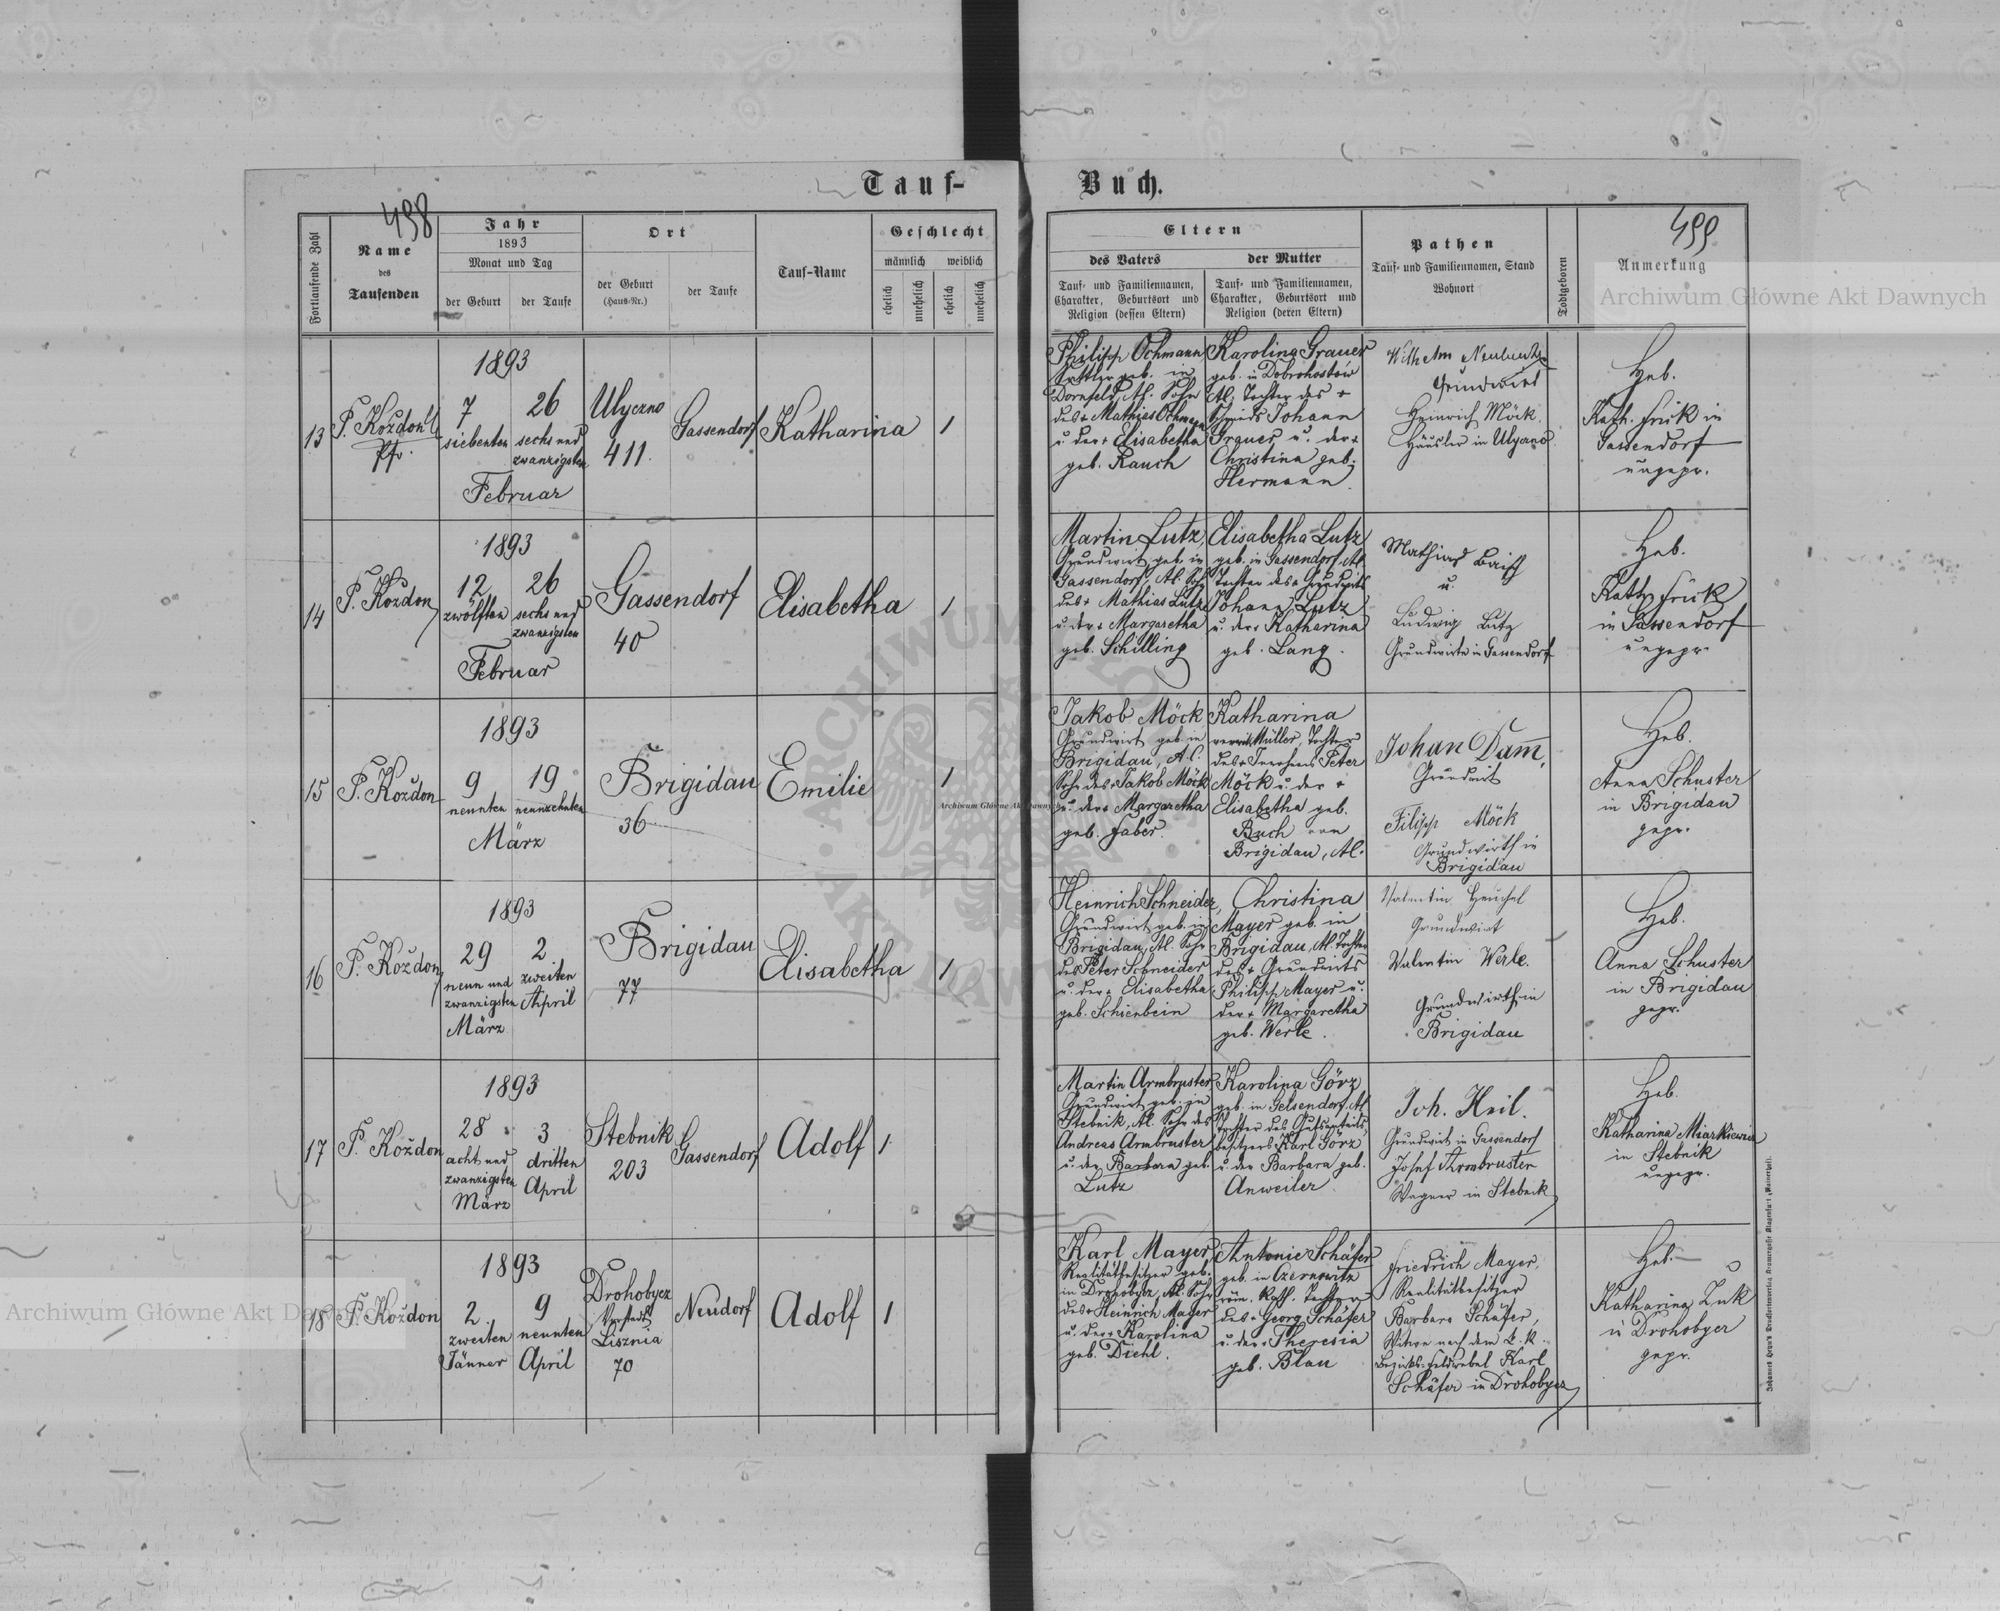 Tauf-
Buch.
498
499
Fortlaufende Zahl
Name
des
Taufenden
Jahr
1893
Monat und Tag
der Geburt
der Taufe
Ort
der Geburt
(Haus-Nr.)
der Taufe
Tauf-Name
Geschlecht
männlich
weiblich
ehelich
unehelich
ehelich
unehelich
Eltern
des Vaters
der Mutter
Tauf- und Familiennamen,
Charakter, Geburtsort und
Religion (dessen Eltern)
Tauf- und Familiennamen,
Charakter, Geburtsort und
Religion (deren Eltern)
Pathen
Tauf- und Familiennamen, Stand
Wohnort
Todtgeboren
Anmerkung
Archiwum Główne Akt Dawnych
13
Pfr.
1893
7
siebenten
26
sechs und
zwanzigsten
Februar
Ulyczno
411.
Gassendorf
Katharina
1
Philipp Ochmann
Sattler geb. in
Dornfeld, Al. Sohn
des + Mathias Ochmann
u. der + Elisabetha
geb. Rauch
Karolina Grauer
geb. in Dobrohostow
Al. Tochter des +
Schmieds Johann
Grauer u. der +
Christina geb.
Hermann.
Wilhelm
Grundwirt
Heinrich Möck
Häusler in Ulyczno
Heb.
Kath. Frick in
Gassendorf
ungepr.
14
P. Koždon
1893
12
zwölften
26
sechs und
zwanzigsten
Februar
Gassendorf
40
Elisabetha
1
Martin Lutz,
Grundwirt geb. in
Gassendorf, Al. Sohn
des + Mathias Lutz
u. der + Margaretha
geb. Schilling
Elisabetha Lutz
geb. in Gassendorf, Al.
Tochter des + Grundwirts
Johann Lutz
u. der + Katharina
geb. Lang.
Mathias
u.
Ludwig Lutz
Grundwirte in Gassendorf
Heb.
Kath. Frick
in Gassendorf
ungepr.
15
P. Koždon
1893
9
neunten
19
neunzehnten
März
Brigidau
36
Emilie
1
Jakob Möck
Grundwirt geb. in
Brigidau, A.C.
Sohn des + Jakob Möck
u. der + Margaretha
geb. Faber.
Katharina
verwit. Müller, Tochter
des + Peter
Möck u. der +
Elisabetha geb.
Buch von
Brigidau, Al.
Johan Dam,
Grundwirt
Filipp Möck
Grundwirth in
Brigidau
Heb.
Anna Schuster
in Brigidau
gepr.
Archiwum Główne Akt Dawnych
16
P. Koždon
1893
29
neun und
zwanzigsten
März
2
zweiten
April
Brigidau
77
Elisabetha
1
Heinrich Schneider,
Grundwirt geb. in
Brigidau, Al. Sohn
des Peter Schneider
u. der + Elisabetha
geb. Schienbein
Christina
Mayer geb. in
Brigidau, Al. Tochter
des + Grundwirts
Philipp Mayer u.
der + Margaretha
geb. Werle.
Valentin Heuchel
Grundwirt
Valentin Werle.
Grundwirth in
Brigidau
Heb.
Anna Schuster
in Brigidau
gepr.
17
P. Koždon
1893
28
acht und
zwanzigsten
März
3
dritten
April
Stebnik
203
Gassendorf
Adolf
1
Martin Armbruster
Grundwirt geb. zu
Stebnik, Al. Sohn des
Andreas Armbruster
u. der Barbara geb.
Lutz
Karolina Görz
geb. in Gelsendorf, Al.
Tochter des Gutsantheils
besitzers Karl Görz
u. der Barbara geb.
Anweiler.
Joh. Heil.
Grundwirt in Gassendorf
Josef Armbruster
Wagner in Stebnik
Heb.
Katharina Miarkiewicz
in Stebnik
ungepr.
18
P. Koždon
1893
2.
zweiten
Jänner
9
neunten
April
Drohobycz
Vorstadt
Lisznia
70
Neudorf
Adolf
1
Karl Mayer,
Realitätbesitzer geb.
in Drohobycz, Al. Sohn
des + Heinrich Mayer
u. der + Karolina
geb. Diehl.
Antonie Schäfer
geb. in Czernowitz
röm. kath. Tochter
des + Georg Schäfer
u. der + Theresia
geb. Blau
Friedrich Mayer,
Realitätbesitzer
Barbara Schäfer,
Witwe nach dem k.k.
Bezirks-Feldwebel Karl
Schäfer in Drohobycz
Heb.
Katharina Luk
in Drohobycz
gepr.
Archiwum Główne Akt Dawnych